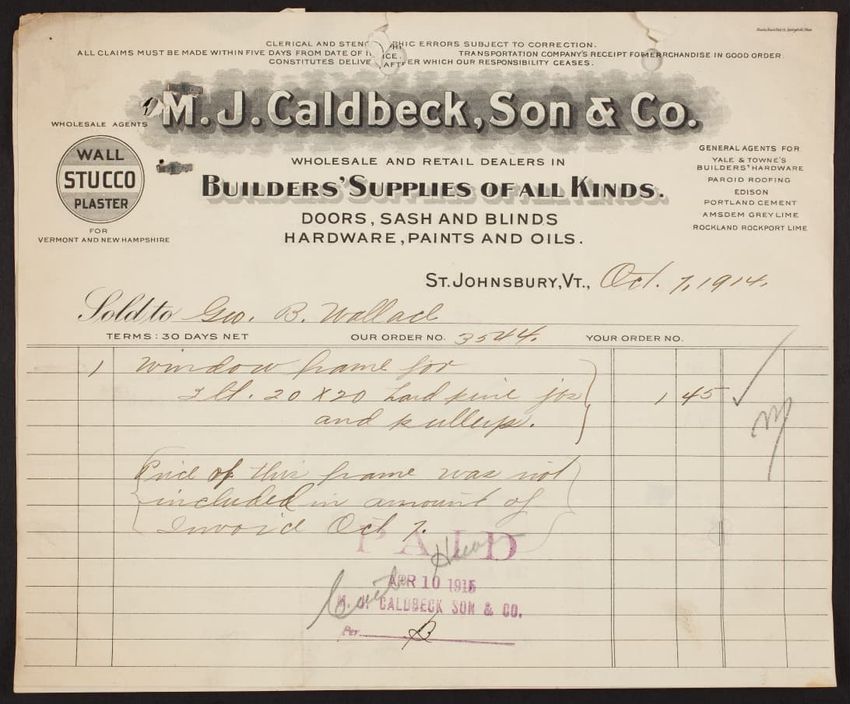 CLERICAL AND STENOGRAPHIC ERRORS SUBJECT TO CORRECTION.
ALL CLAIMS MUST BE MADE WITHIN FIVE DAYS FROM DATE OF TRANSPORTATION COMPANY'S RECEIPT FOR MERCHANDISE IN GOOD ORDER
CONSTITUTES DELIVE AFTER WHICH OUR RESPONSIBILITY CEASES.
M. J. Caldbeck, Son & Co.
WHOLESALE AGENTS
WALL
STUCCO
PLASTER
FOR
VERMONT AND NEW HAMPSHIRE
WHOLESALE AND RETAIL DEALERS IN
BUILDERS' SUPPLIES OF ALL KINDS.
DOORS, SASH AND BLINDS
HARDWARE, PAINTS AND OILS.
GENERAL AGENTS FOR
YALE & TOWNE'S
BUILDERS' HARDWARE
PAROID ROOFING
EDISON
PORTLAND CEMENT
AMSDEM GREY LIME
ROCKLAND ROCKPORT LIME
ST. JOHNSBURY, VT., Oct. 7, 1914.
Sold to Geo. B. Wallace
TERMS: 30 DAYS NET OUR ORDER NO. 3544. YOUR ORDER NO.
1 Window frame for
2 lt. 20 x 20 hard pine 1 45
and pulleys.
Price of this frame was not
included in amount of
Invoice Oct 7.
PAID
APR 10 1915
M. J. CALDBECK SON & CO.
Per B